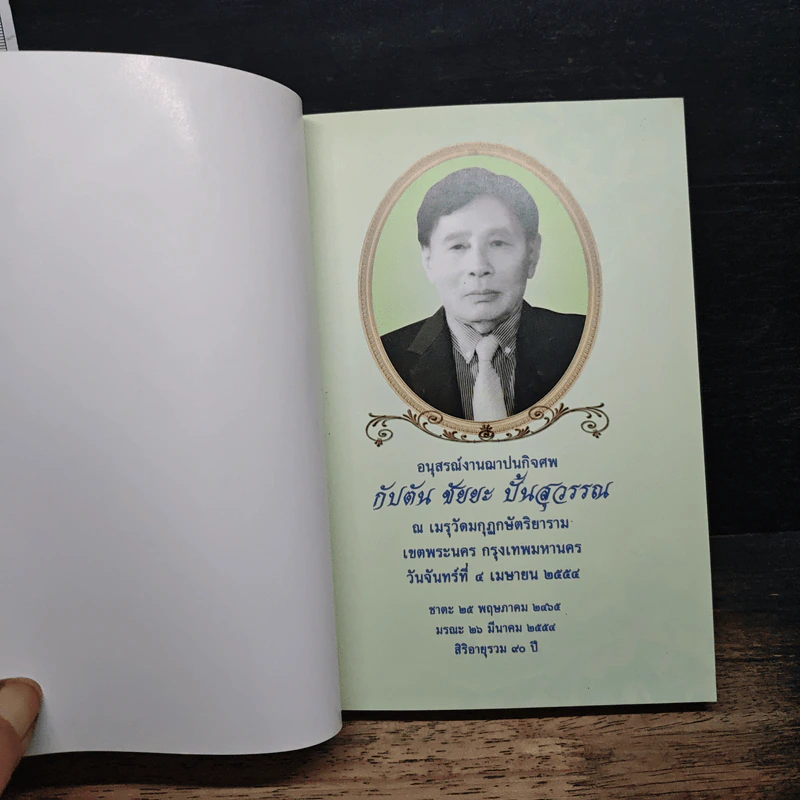 อนุสรณ์งานฌาปนกิจศพ
กัปตัน ชัยยะ ปั้นสุวรรณ
ณ เมรุวัดมกุฏกษัตริยาราม
เขตพระนคร กรุงเทพมหานคร
วันจันทร์ที่ ๔ เมษายน ๒๕๕๔
ชาตะ ๒๕ พฤษภาคม ๒๔๖๕
มรณะ ๒๖ มีนาคม ๒๕๕๔
สิริอายุรวม ๙๐ ปี